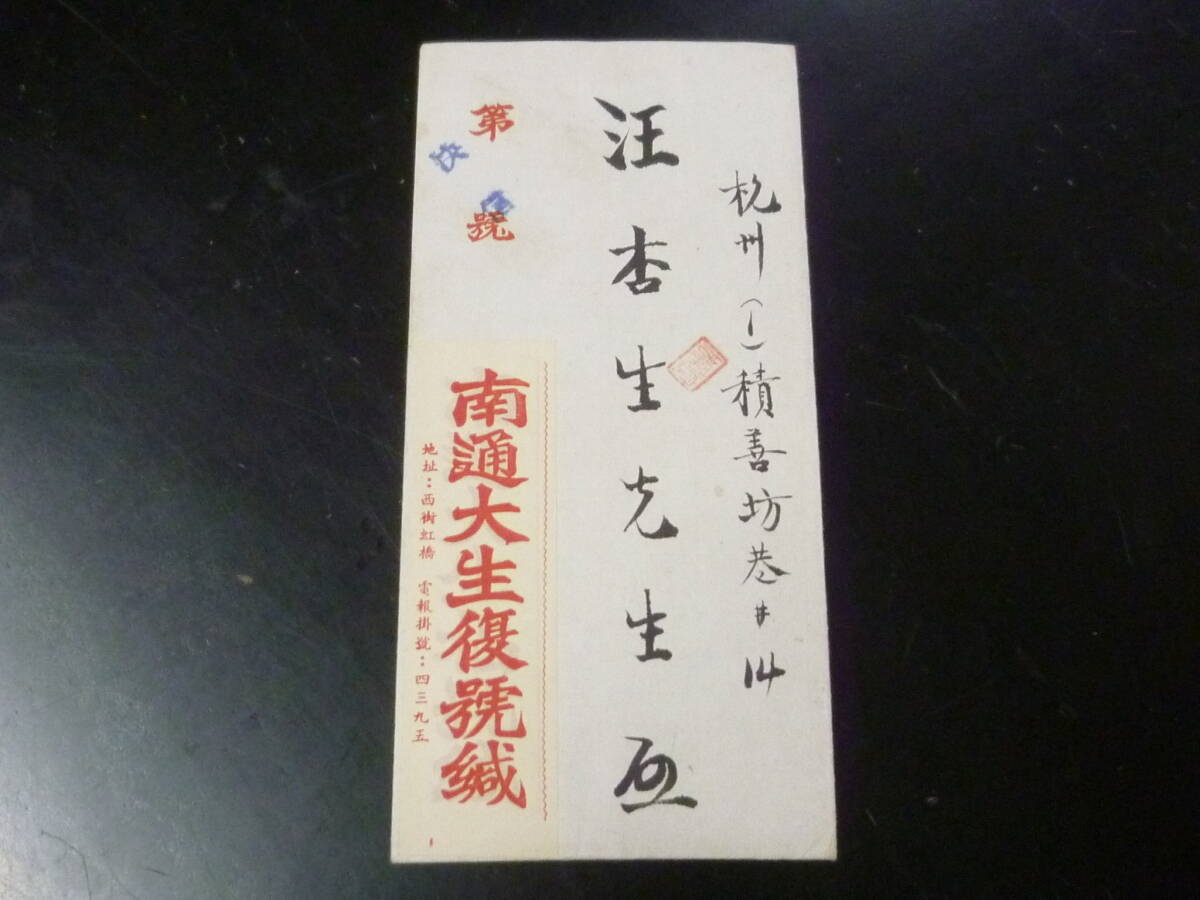 杭州(一)積善坊巷#14
汪杏生先生啟
第 號
南通大生復號緘
地址：西街虹橋 電報掛號：四三九五